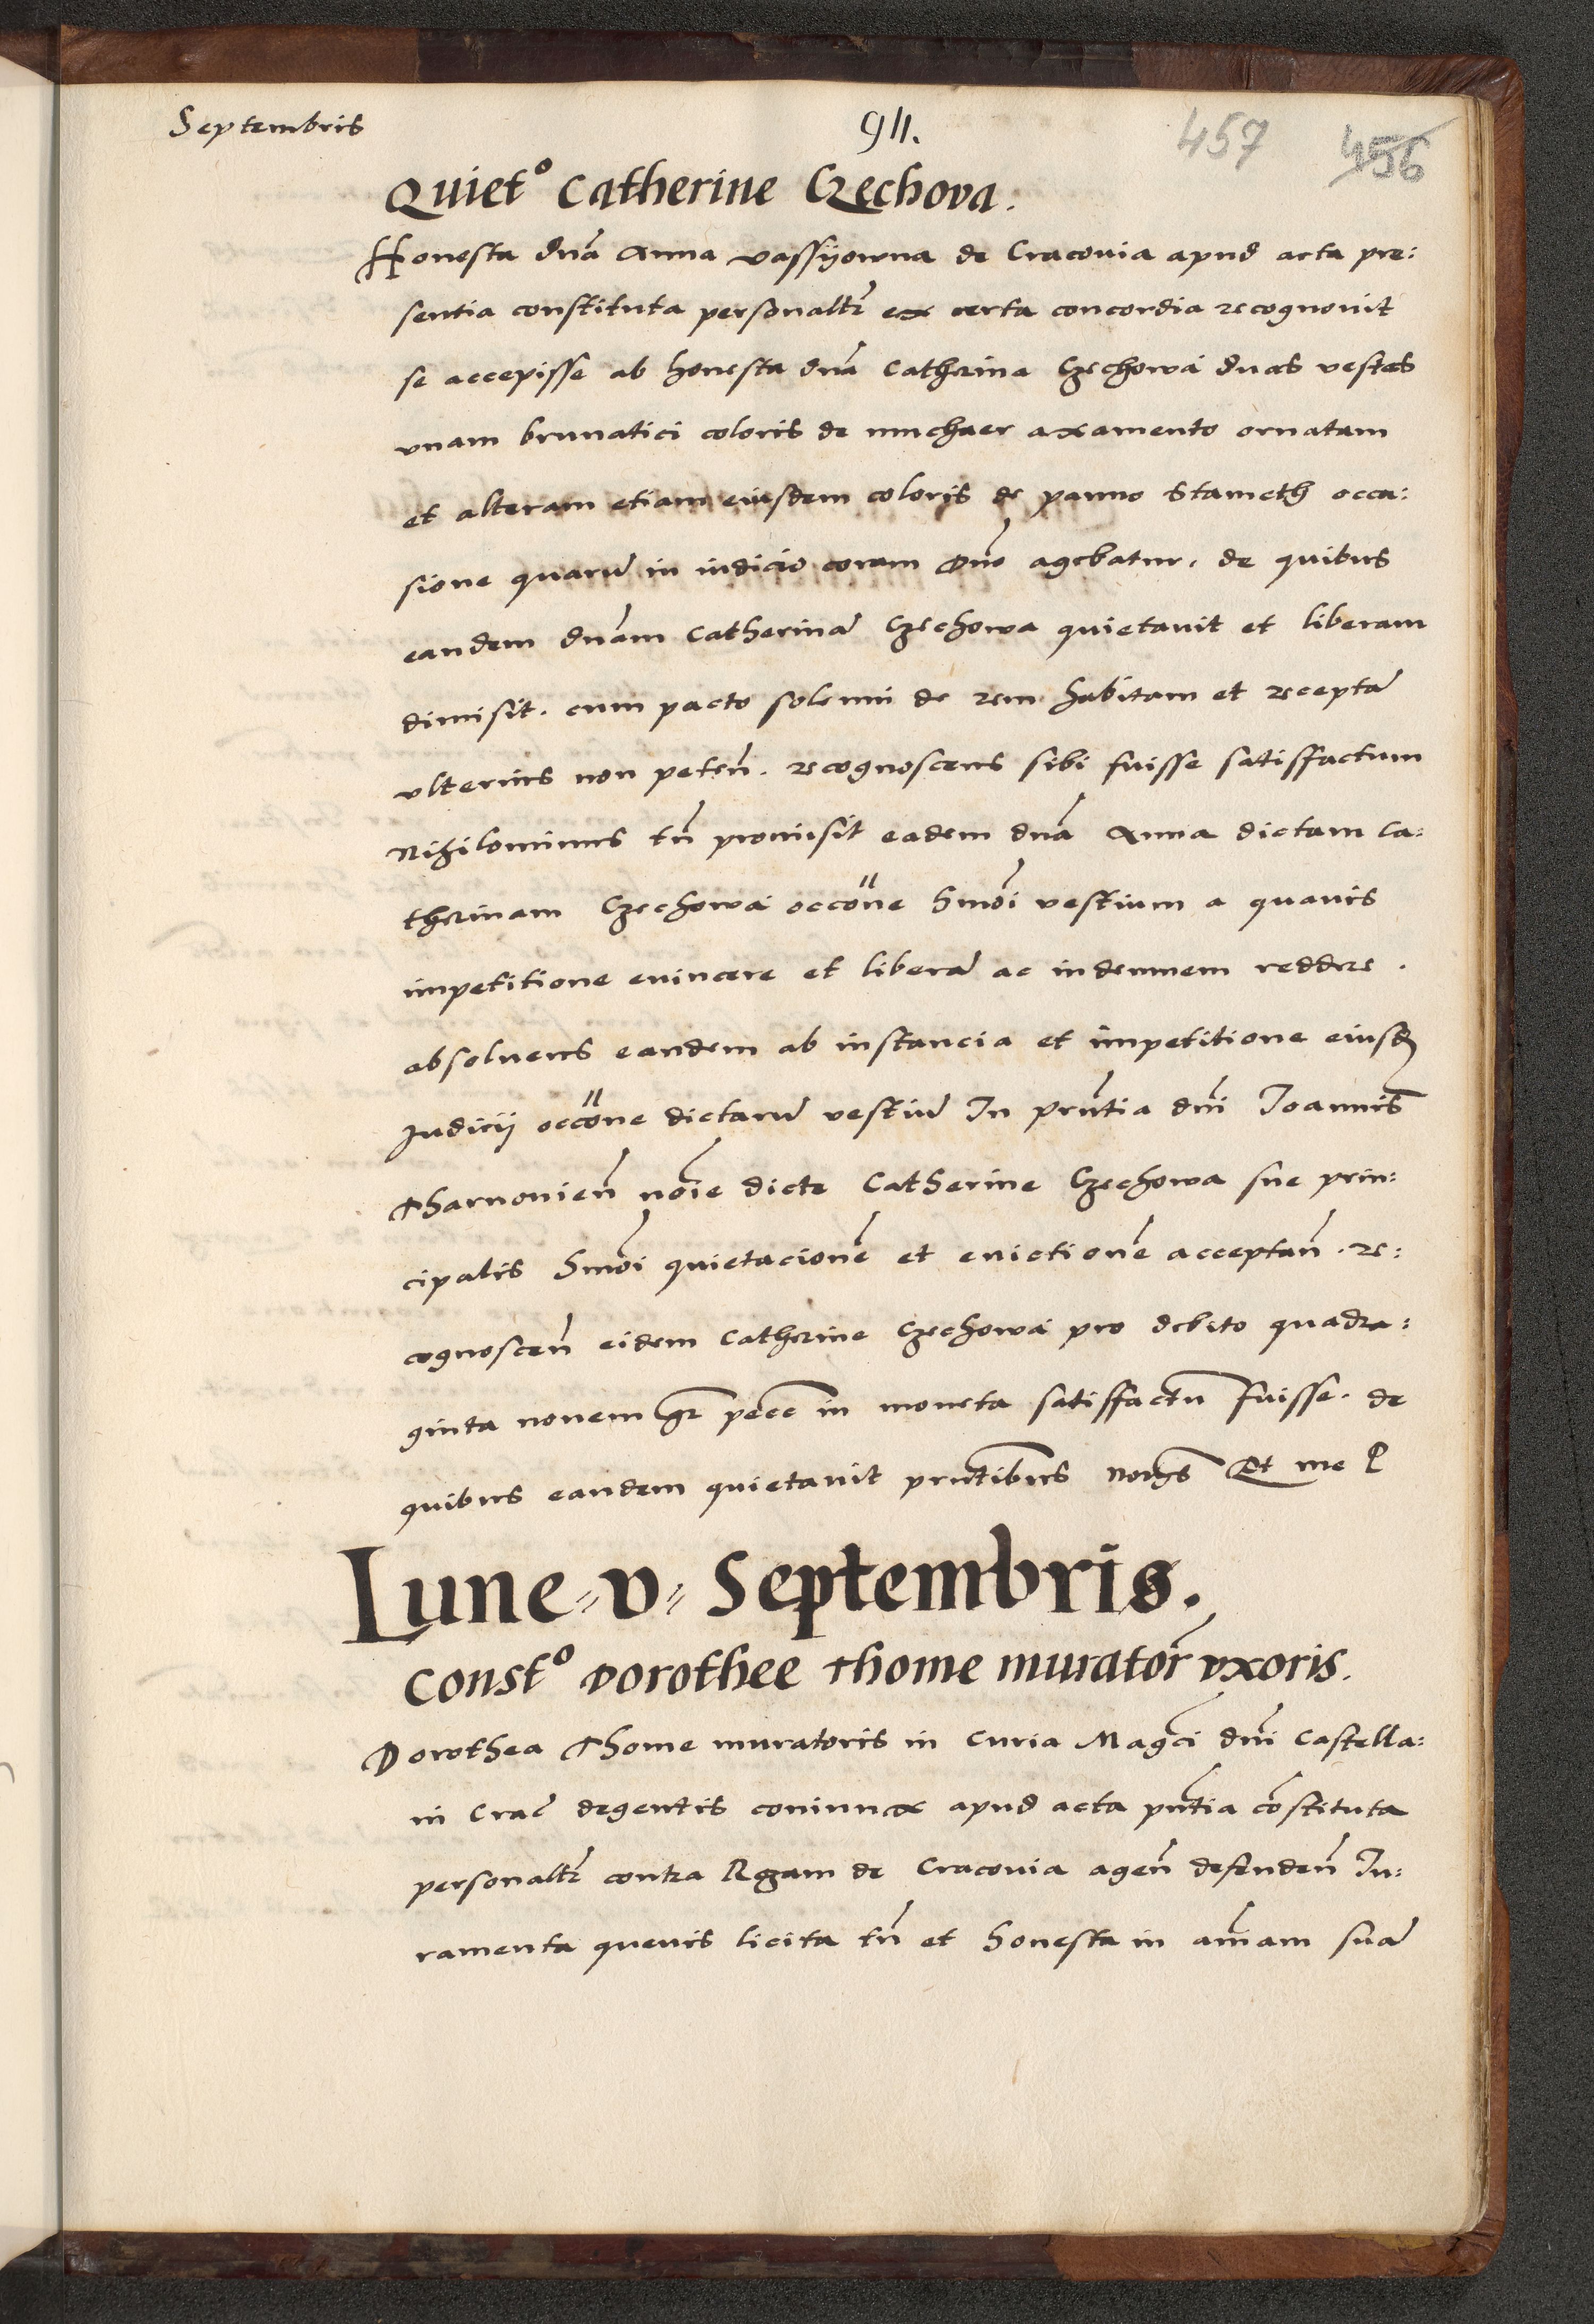 Septembris
911.
457 456
Quiet° Catherine Czechova.
Honesta dnā Anna vassÿowna de Cracovia apud acta pre:
sentia constituta personaltr̄ ex certa concordia recognovit
se accepisse ab honesta dnā Catherina Czechowa duas vestes
vnam brunatici coloris de muchaer axamento ornatam
et alteram etiam eiusdem coloris de panno Stameth occa:
sione quarū in iudicio coram dn̄o agebatur. de quibus
eandem dnām Catherinā Czechowa quietavit et liberam
dimisit. cum pacto solemni de rem habitam et receptā
vlterius non peteñ. recognoscens sibi fuisse satisffactum
Nihilominus tñ promisit eadem dnā Anna dictam Ca:
therinam Czechowa occōne hmōi vestium a quavis
impetitione evincere et liberā ac indemnem reddere.
absoluens eandem ab instancia et impetitione eiusd
Judicij occōne dictarū vestiū In prn̄tia dnī Joannis
Tharnovieñ nōie dicte Catherine Czechowa sue prin:
cipalis hmōi quietacionē et evictionē acceptañ. re:
cognosceñ eidem Catherine Czechowa pro debito quadra:
ginta novem gr̄ pecc̄ in moneta satisffactū fuisse. de
quibus eandem quietavit prn̄tibus Et me
Lune v Septembris.
Const° Dorothee Thome murator̄ vxoris.
Dorothea Thome muratoris in Curia Magcī dnī Castella:
ni Crac̄ degentis coniunx apud acta pn̄tia cōstituta
personaltr̄ contra de Cracovia ageñ defendeñ Iu:
ramenta quevis licita tñ et honesta in aīmam suā